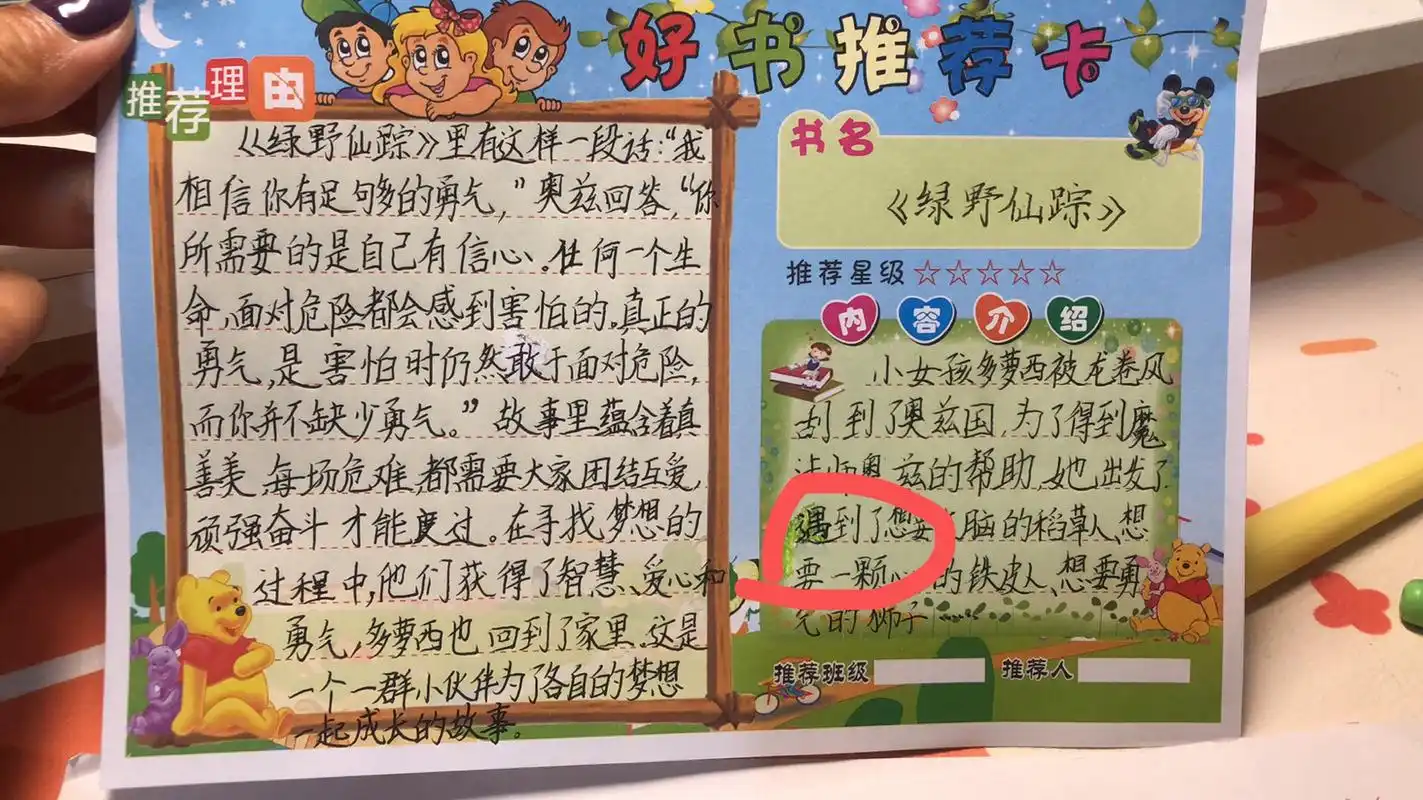 好书推荐卡
推荐理由
《绿野仙踪》里有这样一段话:“我
相信你有足够多的勇气,”奥兹回答,“你
所需要的是自己有信心。任何一个生
命,面对危险都会感到害怕的。真正的
勇气,是害怕时仍然敢于面对危险,
而你并不缺少勇气。”故事里蕴含着真
善美,每场危难,都需要大家团结互爱,
顽强奋斗才能度过。在寻找梦想的
过程中,他们获得了智慧、爱心和
勇气,多萝西也回到了家里。这是
一个一群小伙伴为了各自的梦想
一起成长的故事。
书名
《绿野仙踪》
推荐星级☆☆☆☆☆
内容介绍
小女孩多萝西被龙卷风
刮到了奥兹国,为了得到魔
法师奥兹的帮助,她出发了
遇到了想要脑的稻草人、想
要一颗心的铁皮人、想要勇
气的狮子……
推荐班级
推荐人